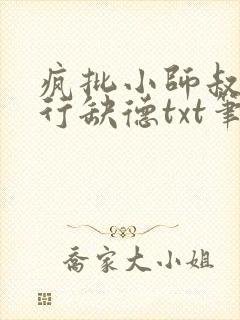 疯批小師叔
行缺德txt筆
喬家大小姐